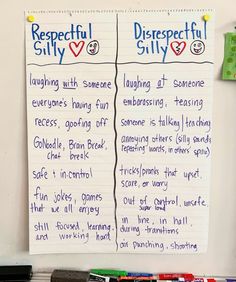 Respectful Silly
laughing with someone
everyone's having fun
recess, goofing off
GoNoodle, Brain Break,
chat break
safe + in-control
fun jokes, games
that we all enjoy
still focused, learning,
and working hard
Disrespectful Silly
laughing at someone
embarassing, teasing
someone is talking/teaching
annoying others (silly sounds,
repeating words, in others' space)
tricks/pranks that upset,
scare, or worry
out of control, unsafe,
super loud
in line, in hall,
during transitions
air punching, shooting